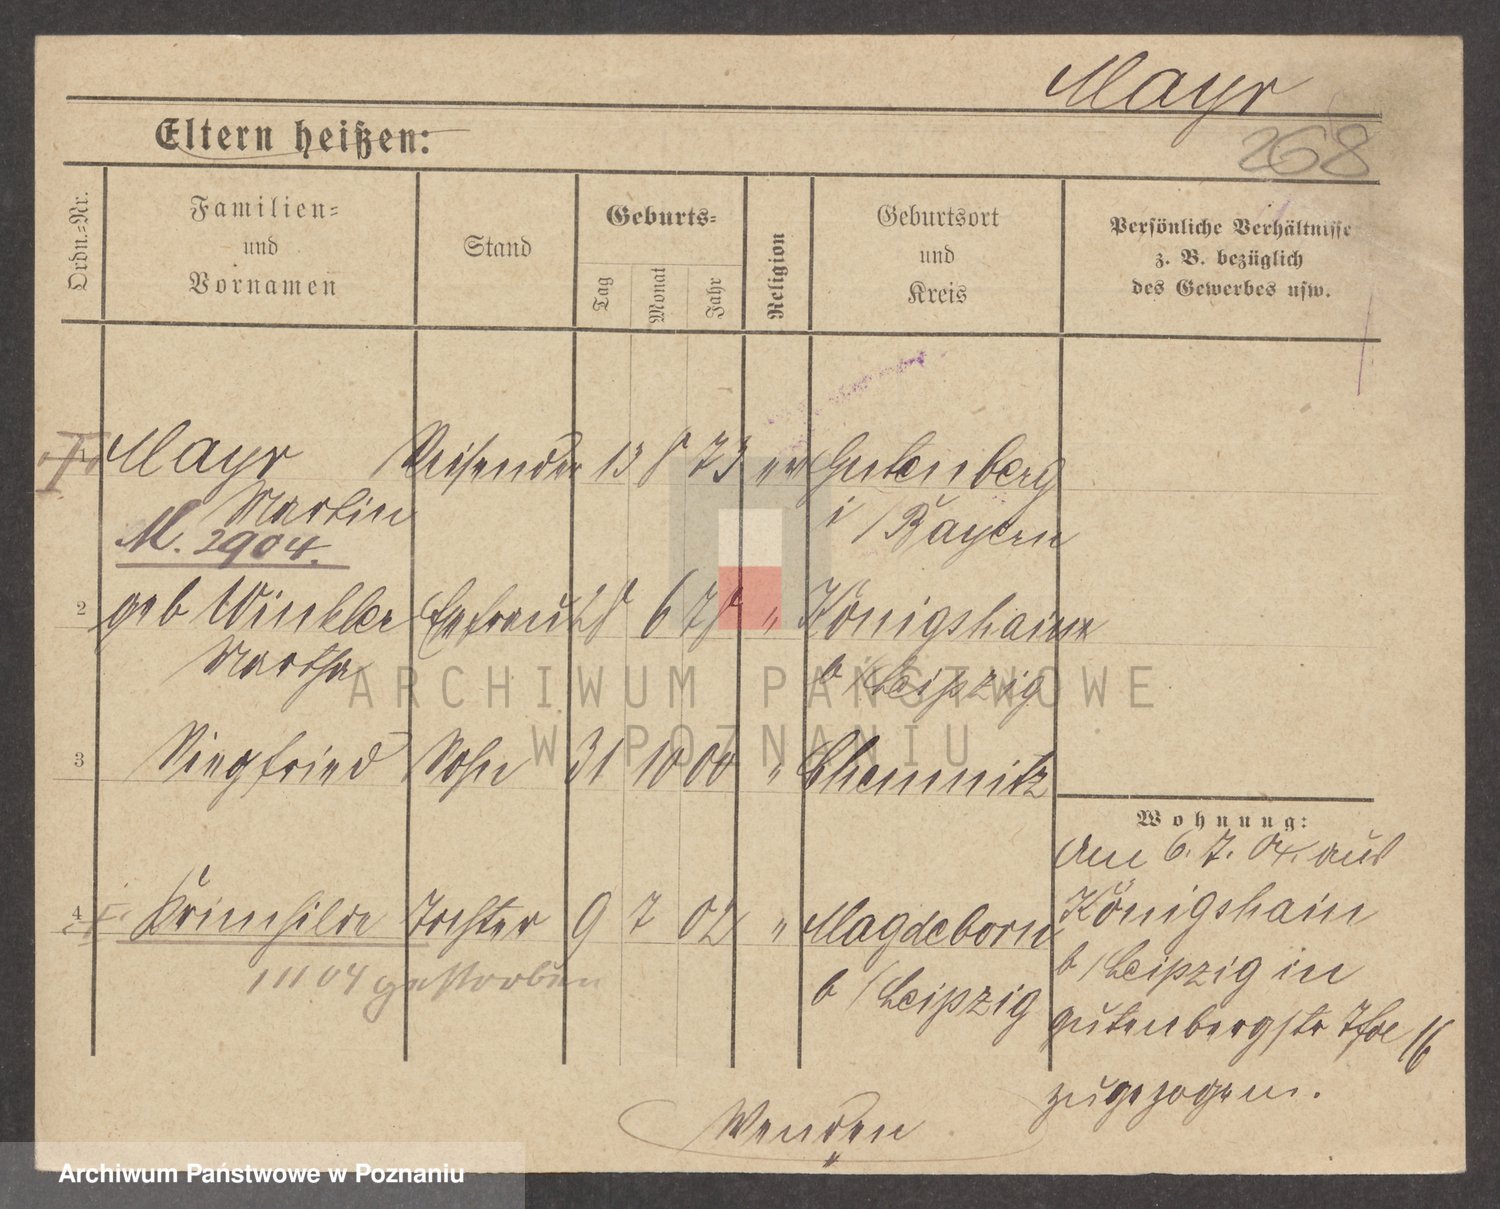 Mayr
268
Eltern heißen:
Ordn.-Nr.
Familien-
und
Vornamen
Stand
Geburts-
Tag
Monat
Jahr
Religion
Geburtsort
und
Kreis
Persönliche Verhältnisse
z. B. bezüglich
des Gewerbes usw.
1 Mayr Reisender 13 8 73 ev Gutenberg
Martin i/Bayern
M. 2904.
2 geb Winkler Ehefrau 28 6 78 " Königshain
Martha b/Leipzig
3 Siegfried Sohn 31 10 00 " Chemnitz
Wohnung:
am 6. 7. 04. aus
4 Krimhilde Tochter 9 7 02 " Magdeborn Königshain
11 04 gestorben b/Leipzig b/Leipzig in
gutenbergstr 16
zugezogen.
Wenden
ARCHIWUM PAŃSTWOWE
W POZNANIU
Archiwum Państwowe w Poznaniu